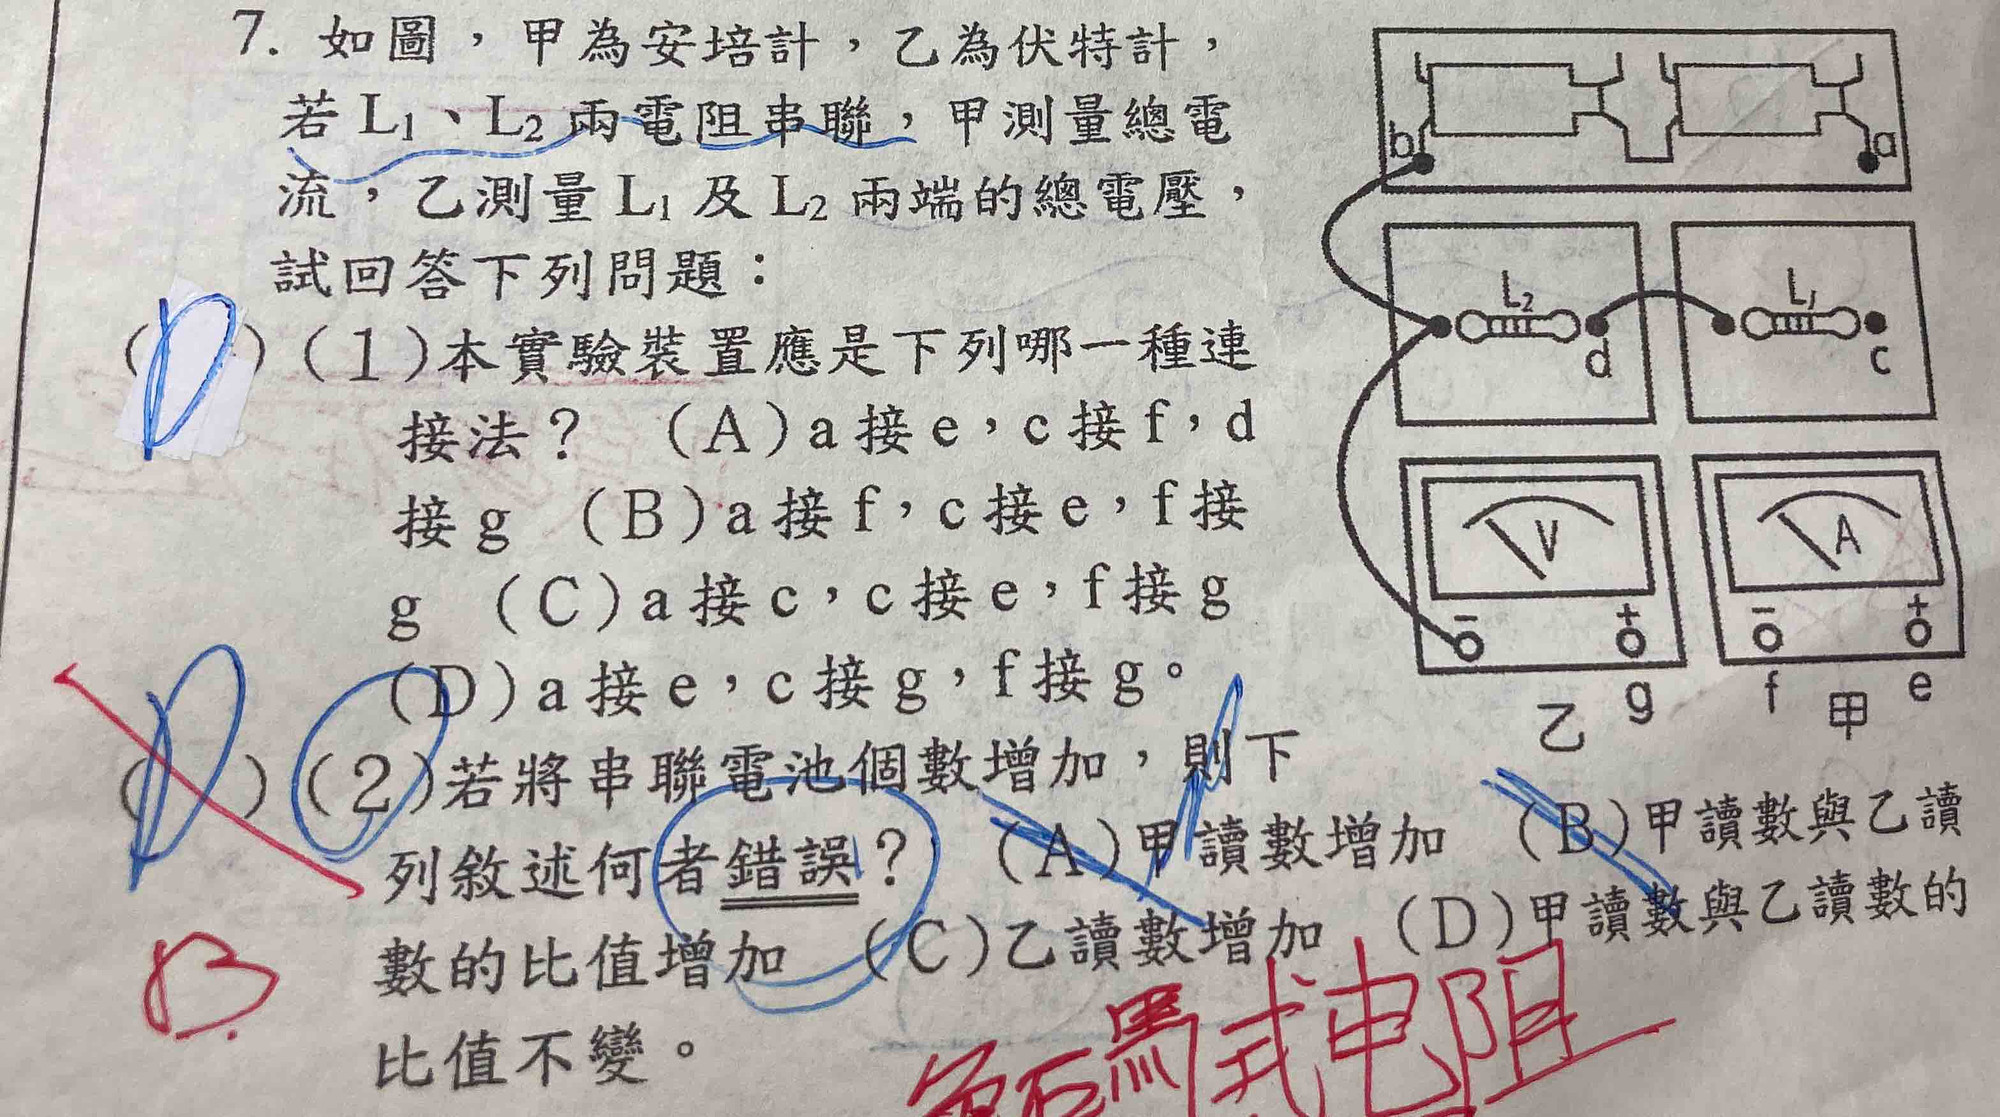 7. 如圖，甲為安培計，乙為伏特計，
若L₁、L₂兩電阻串聯，甲測量總電
流，乙測量L₁及L₂兩端的總電壓，
試回答下列問題：
(D)(1)本實驗裝置應是下列哪一種連
接法？ (A)a接e，c接f，d
接g (B)a接f，c接e，f接
g (C)a接c，c接e，f接g
(D)a接e，c接g，f接g。
(D)(2)若將串聯電池個數增加，則下
列敘述何者錯誤？ (A)甲讀數增加 (B)甲讀數與乙讀
數的比值增加 (C)乙讀數增加 (D)甲讀數與乙讀數的
比值不變。
B
電阻
b a
L₂ L₁
d c
V A
− + − +
g f e
乙 甲